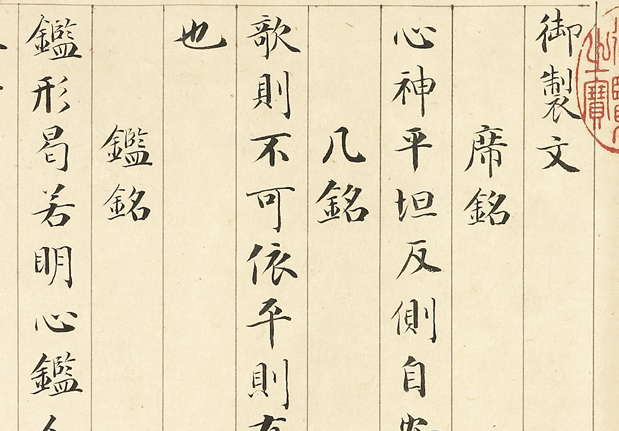 御製文
席銘
心神平坦反側自
几銘
歌則不可依平則
也
鑑銘
鑑形曷若明心鑑